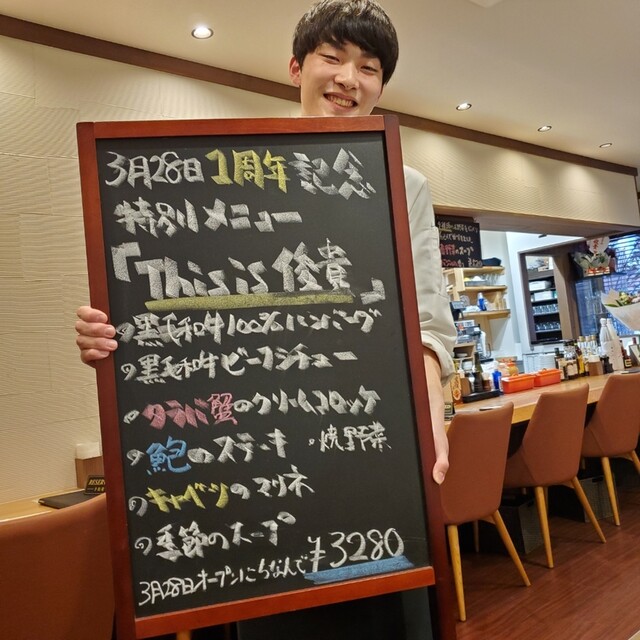 3月28日 1周年 記念
特別メニュー
『This is 俊貴』
黒毛和牛100%ハンバーグ
黒毛和牛ビーフシチュー
タラバ蟹のクリームコロッケ
鮑のステーキ ・焼野菜
キャベツのマリネ
季節のスープ
3月28日オープンにちなんで ¥3280
RESERVED